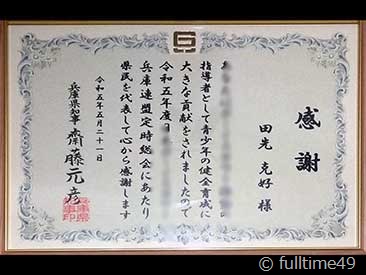 感謝
田先 克好 様
指導者として青少年の健全育成に
大きな貢献をされましたので
令和五年度
兵庫連盟定時総会にあたり
県民を代表して心から感謝します
令和五年五月二十一日
兵庫県知事 齋藤元彦
© fulltime49